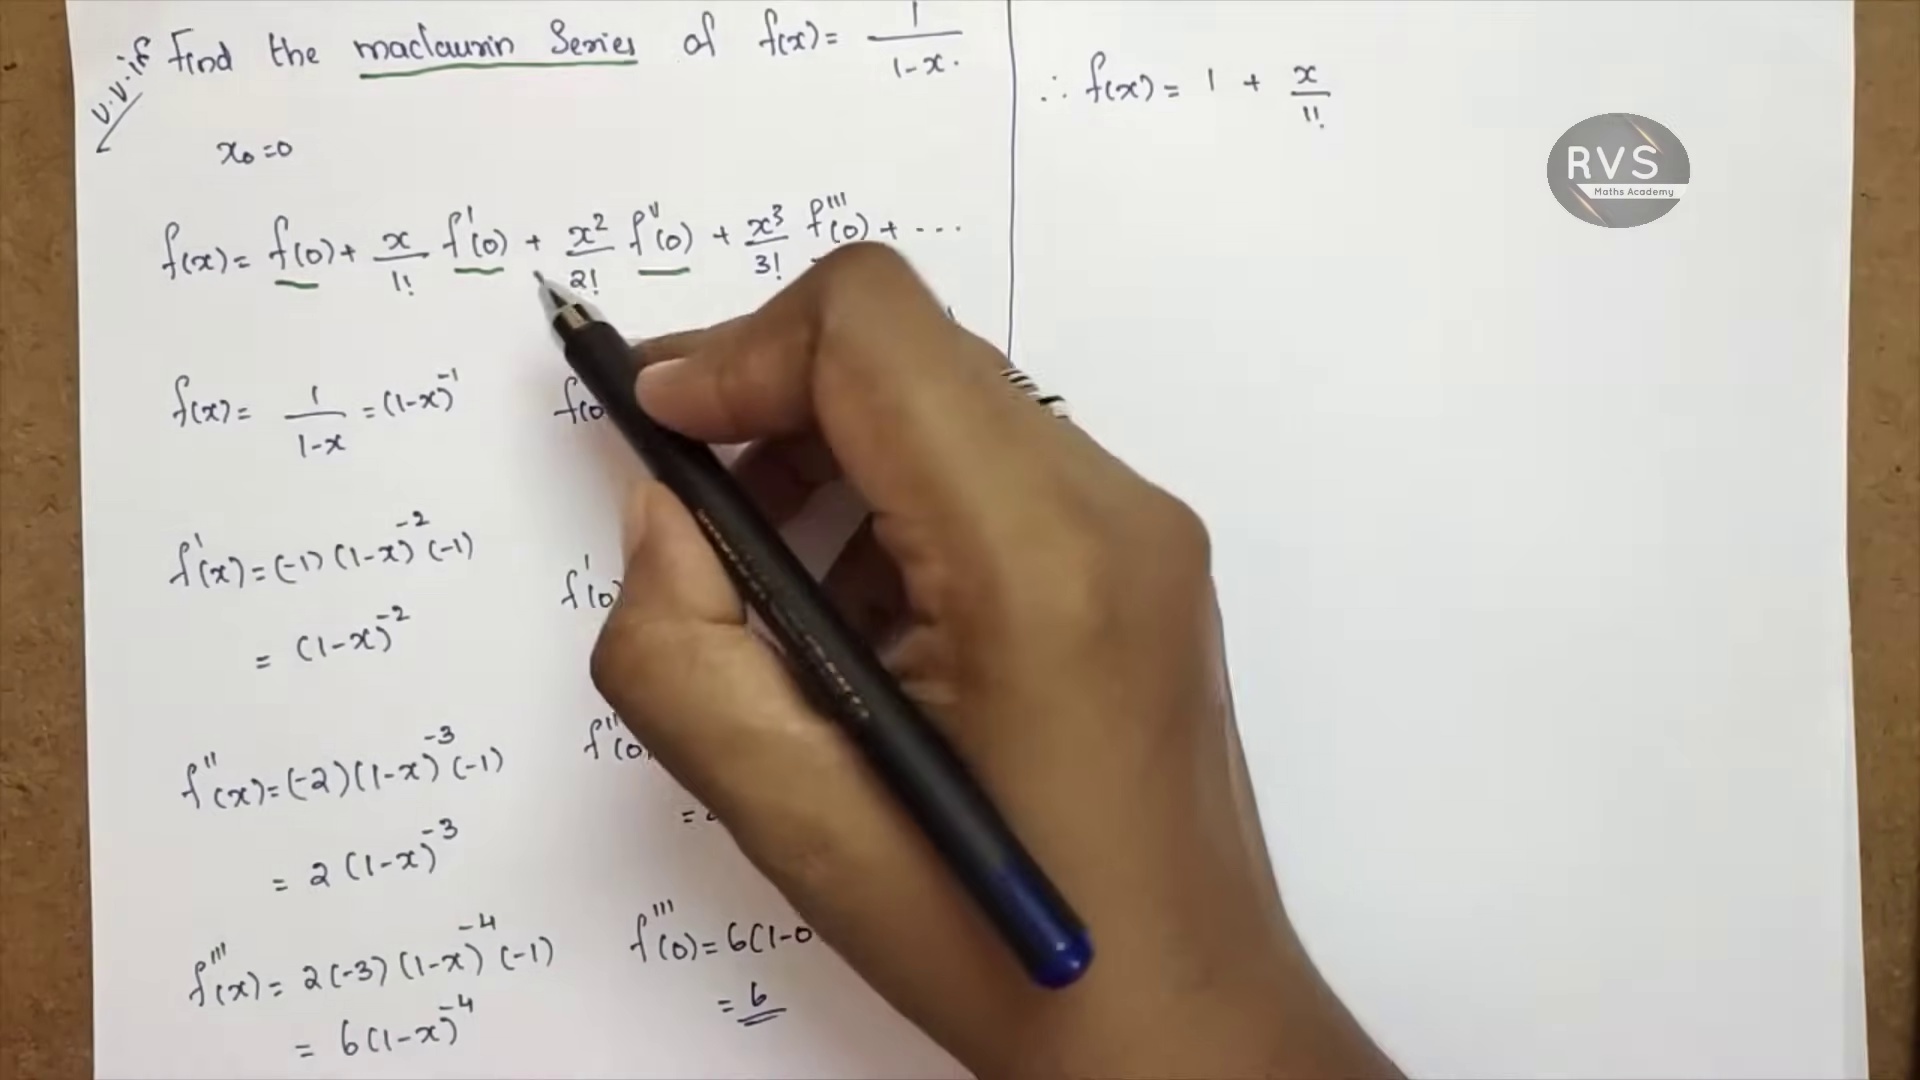 v.v.if Find the maclaurin Series of f(x) = 1/1-x.
x₀=0
f(x) = f(0) + x/1! f'(0) + x²/2! f''(0) + x³/3! f'''(0) + ...
f(x) = 1/1-x = (1-x)⁻¹ f(0
f'(x) = (-1) (1-x)⁻² (-1) f'(0)
= (1-x)⁻²
f''(x) = (-2) (1-x)⁻³ (-1) f''(0
= 2 (1-x)⁻³
f'''(x) = 2(-3) (1-x)⁻⁴ (-1) f'''(0) = 6(1-0
= 6(1-x)⁻⁴ = 6
∴ f(x) = 1 + x/1!
RVS
Maths Academy